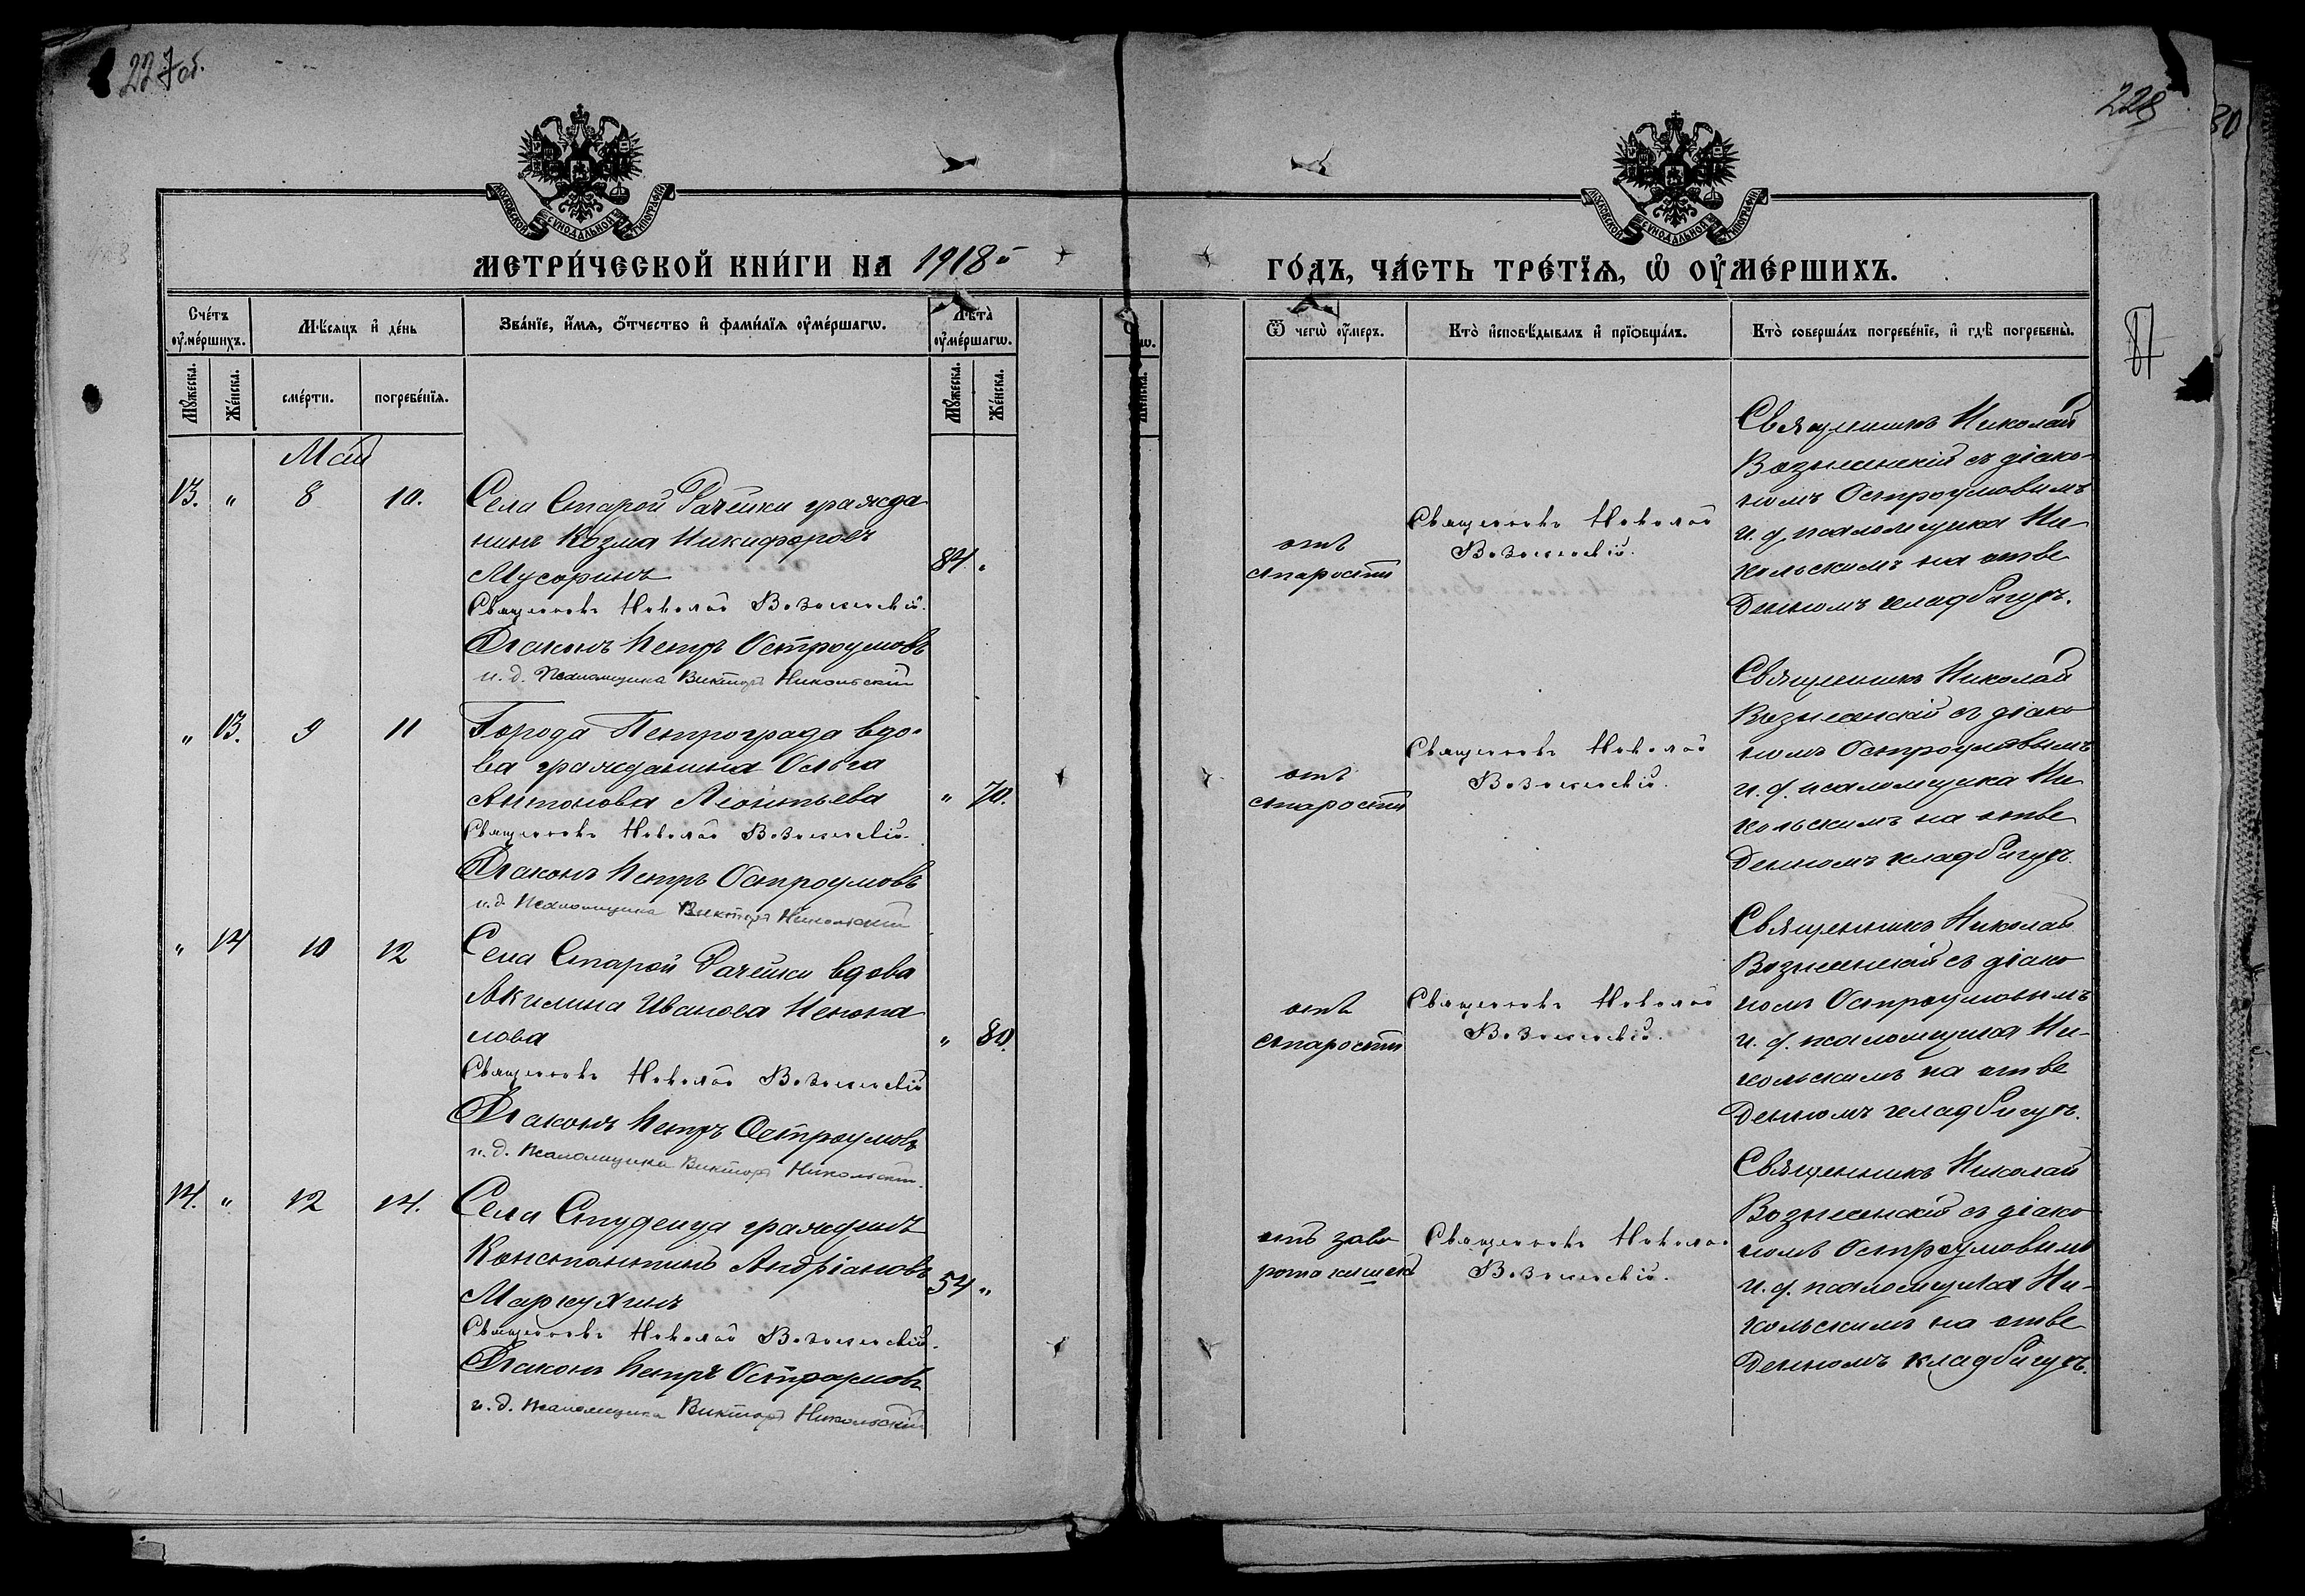 227об.
228
30
МОСКОВСКОЙ СѴНОДАЛЬНОЙ ТИПОГРАФІИ
МОСКОВСКОЙ СѴНОДАЛЬНОЙ ТИПОГРАФІИ
МЕТРИ́ЧЕСКОЙ КНИ́ГИ НА 1918й
ГО́ДЪ, ЧА́СТЬ ТРЕ́ТЇѦ, Ѡ҆ ОУ҆МЕ́РШИХЪ.
Сче́тъ оу҆ме́ршихъ.
Мѣ́сяцъ и҆ де́нь
Зва́нїе, и҆́мѧ, ѻ҆́тчество и҆ фами́лїѧ оу҆ме́ршагѡ.
Лѣта̀ оу҆ме́ршагѡ.
Му́жеска.
Же́нска.
сме́рти.
погребе́нїѧ.
Му́жеска.
Же́нска.
ѡ.
Же́нска.
Ѿ чегѡ̀ оу҆́меръ.
Кто̀ и҆сповѣ́дывалъ и҆ прїѡбща́лъ.
Кто̀ соверша́лъ погребе́нїе, и҆ гдѣ̀ погребены̀.
Май
13. " 8 10.
Села Старой Рачейки гражда
нинъ Козма Никифоровъ
Мусоринъ
84 "
Священникъ Николай Вознесенскій.
Діаконъ Петръ Остроумовъ
и. д. Псаломщика Викторъ Никольскій
отъ
старости
Священникъ Николай
Вознесенскій.
Священникъ Николай
Вознесенскій съ діако-
номъ Остроумовымъ
и. д. псаломщика Ни-
кольскимъ на отве
денномъ кладбищѣ.
" 13. 9 11
Города Петрограда вдо-
ва гражданина Ольга
Антонова Леонтьева
" 70.
Священникъ Николай Вознесенскій.
Діаконъ Петръ Остроумовъ
и. д. Псаломщика Викторъ Никольскій
отъ
старости
Священникъ Николай
Вознесенскій.
Священникъ Николай
Вознесенскій съ діако
номъ Остроумовымъ
и. д. псаломщика Ни
кольскимъ на отве
денномъ кладбищѣ.
" 14 10 12
Села Старой Рачейки вдова
Акилина Иванова Непопа
лова
" 80.
Священникъ Николай Вознесенскій
Діаконъ Петръ Остроумовъ
и. д. Псаломщика Викторъ Никольскій.
отъ
старости
Священникъ Николай
Вознесенскій.
Священникъ Николай
Вознесенскій съ діако
номъ Остроумовымъ
и. д. псаломщика Ни-
кольскимъ на отве
денномъ кладбищѣ.
14. " 12 14.
Села Студенца граждинъ
Константинъ Андріановъ
Маркухинъ
54 "
Священникъ Николай Вознесенскій.
Діаконъ Петръ Остроумовъ
и. д. Псаломщика Викторъ Никольскій
отъ заво
рота кишекъ
Священникъ Николай
Вознесенскій.
Священникъ Николай
Вознесенскій съ діако
номъ Остроумовымъ
и. д. псаломщика Ни-
кольскимъ на отве
денномъ кладбищѣ.